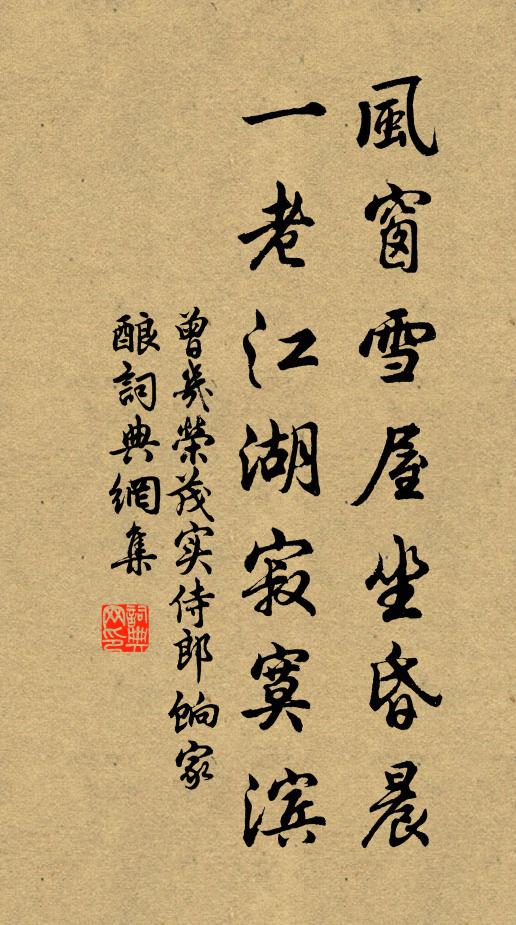 風窗雪屋坐昏晨
一老江湖寂寞滨
曾幾榮茂实侍郎餉家
酿詞典網集
詞典网印